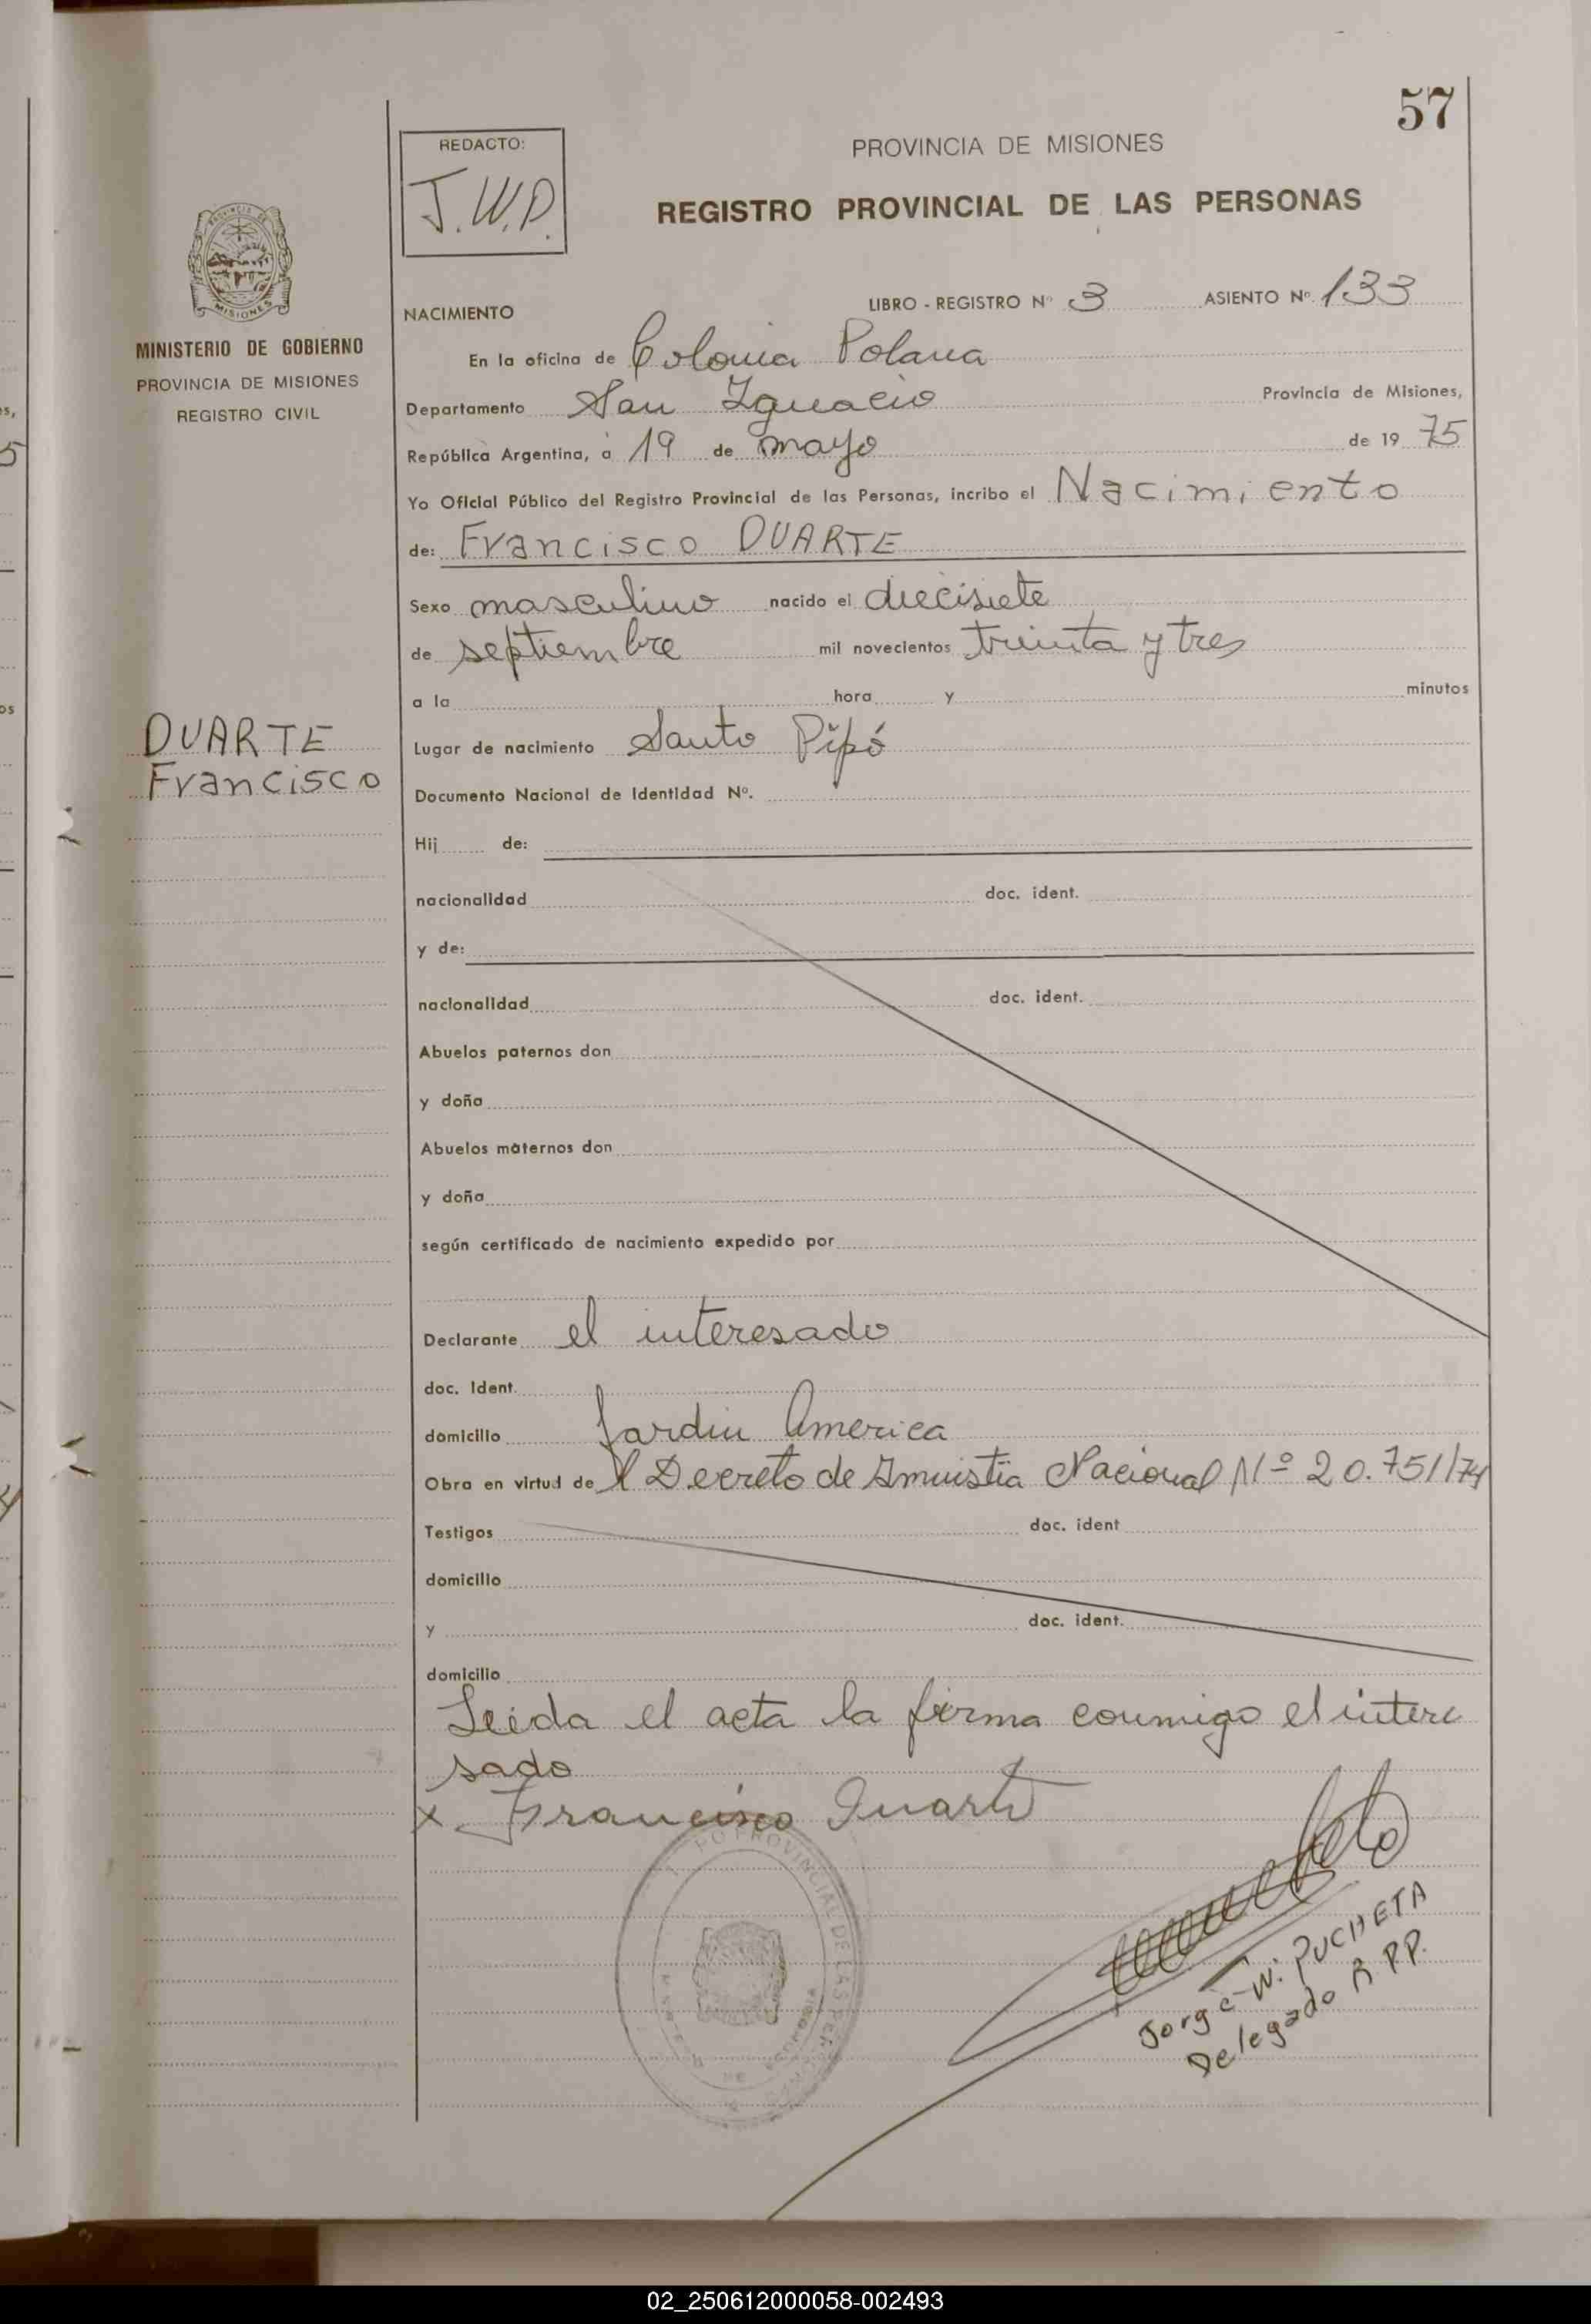 57
REDACTO:
J.W.P.
PROVINCIA DE MISIONES
REGISTRO PROVINCIAL DE LAS PERSONAS
MISIONES
MINISTERIO DE GOBIERNO
PROVINCIA DE MISIONES
REGISTRO CIVIL
DUARTE
Francisco
NACIMIENTO
LIBRO - REGISTRO Nº 3 ASIENTO Nº 133
En la oficina de Colonia Polana
Departamento San Ignacio Provincia de Misiones,
República Argentina, a 19 de mayo de 19 75
Yo Oficial Público del Registro Provincial de las Personas, incribo el Nacimiento
de: Francisco DUARTE
Sexo masculino nacido el diecisiete
de septiembre mil novecientos treinta y tres
a la hora y minutos
Lugar de nacimiento Santo Pipó
Documento Nacional de Identidad Nº.
Hij de:
nacionalidad doc. ident.
y de:
nacionalidad doc. ident.
Abuelos paternos don
y doña
Abuelos maternos don
y doña
según certificado de nacimiento expedido por
Declarante el interesado
doc. Ident.
domicilio Jardin America
Obra en virtud de l Decreto de Amnistia Nacional Nº 20.751/74
Testigos doc. ident
domicilio
y doc. ident.
domicilio
Leida el acta la firma conmigo el intere
sado
x Francisco Duarte
PROVINCIAL DE LAS PER
Jorge W. PUCHETA
Delegado R.P.P.
02_250612000058-002493